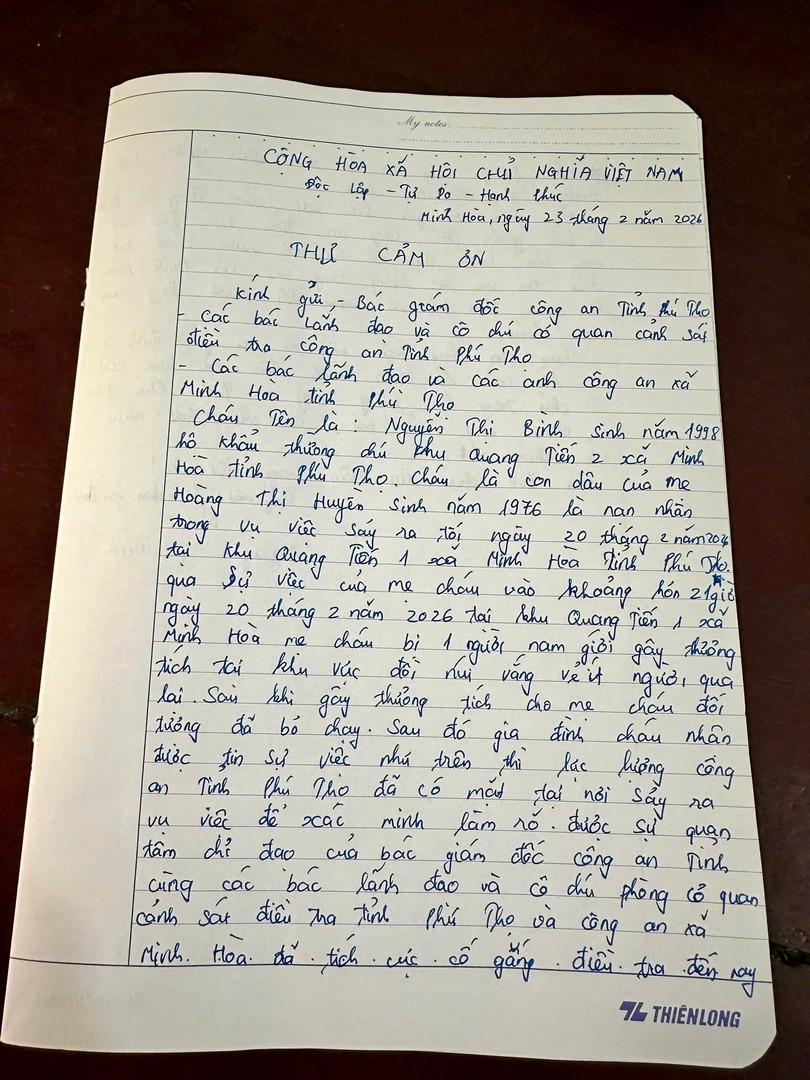 My notes:
CỘNG HÒA XÃ HÔI CHỦ NGHĨA VIỆT NAM
Độc Lập - Tự Do - Hạnh Phúc
Minh Hòa, ngày 23 tháng 2 năm 2026
THƯ CẢM ƠN
Kính gửi, - Bác giám đốc công an Tỉnh Phú Thọ
- Các bác Lãnh đạo và cô chú cơ quan cảnh sát
điều tra công an Tỉnh Phú Thọ
- Các bác lãnh đạo và các anh công an xã
Minh Hoà tỉnh Phú Thọ
Cháu Tên là : Nguyễn Thi Bình Sinh năm 1998
hô khẩu thường chú khu Quang Tiến 2 xã Minh
Hoà tỉnh Phú Thọ. cháu là con dâu của me
Hoàng Thị Huyền Sinh năm 1976 là nan nhân
trong vụ viêc sảy ra tối ngày 20 tháng 2 năm 2026
tai khu Quang Tiến 1 xã Minh Hoà Tỉnh Phú Thọ.
qua Sự viêc của me cháu vào khoảng hơn 21 giờ
ngày 20 tháng 2 năm 2026 tai khu Quang Tiến 1 xã
Minh Hoà me cháu bi 1 người nam giới gây thương
tích tai khu vưc đồi núi vắng vẻ ít người qua
lai. Sau khi gây thương tích cho me cháu đối
tương đã bỏ chay. Sau đó gia đình cháu nhân
được tin sự viêc như trên thì lưc lương công
an Tỉnh Phú Thọ đã có măt tai nơi Sảy ra
vu viêc để xác minh làm rõ. được sự quan
tâm chỉ đao của bác giám đốc công an Tỉnh
cùng các bác lãnh đao và cô chú phòng cơ quan
cảnh sát điều tra tỉnh Phú Tho và công an xã
Minh Hoà đã tích cưc cố gắng điều tra đến nay
THIÊN LONG